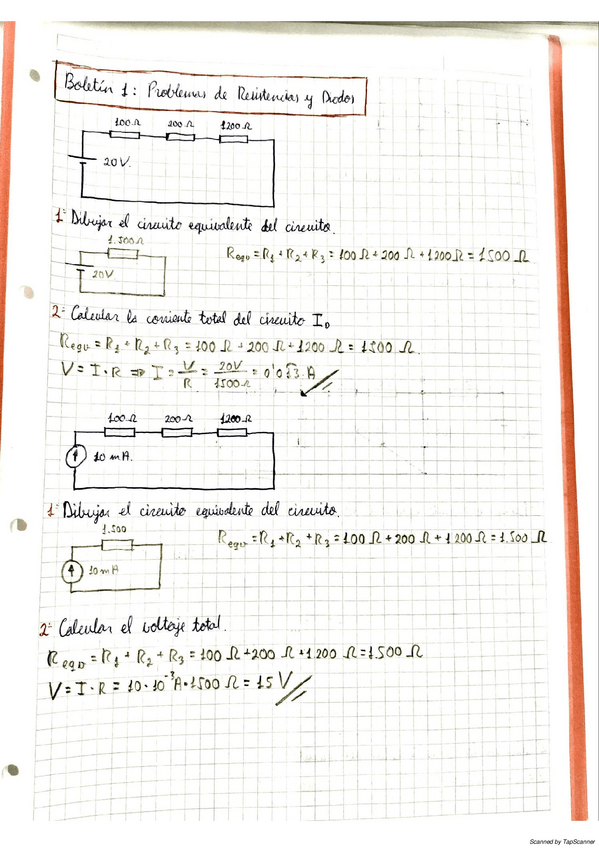 Boletín 1: Problemas de Resistencias y Diodos
100Ω 200Ω 1200Ω
20V.
1º Dibujar el circuito equivalente del circuito.
1.500Ω
20V
Requ = R1 + R2 + R3 = 100 Ω + 200 Ω + 1200 Ω = 1500 Ω
2º Calcular la corriente total del circuito I0
Requ = R1 + R2 + R3 = 100 Ω + 200 Ω + 1200 Ω = 1500 Ω.
V = I · R ⇒ I = V/R = 20V/1500Ω = 0'013 A
100Ω 200Ω 1200Ω
10 mA.
1º Dibujar el circuito equivalente del circuito.
1.500
10mA
Requ = R1 + R2 + R3 = 100 Ω + 200 Ω + 1200 Ω = 1.500 Ω
2º Calcular el voltaje total.
Requ = R1 + R2 + R3 = 100 Ω + 200 Ω + 1200 Ω = 1500 Ω
V = I · R = 10 · 10⁻³A · 1500 Ω = 15 V
Scanned by TapScanner